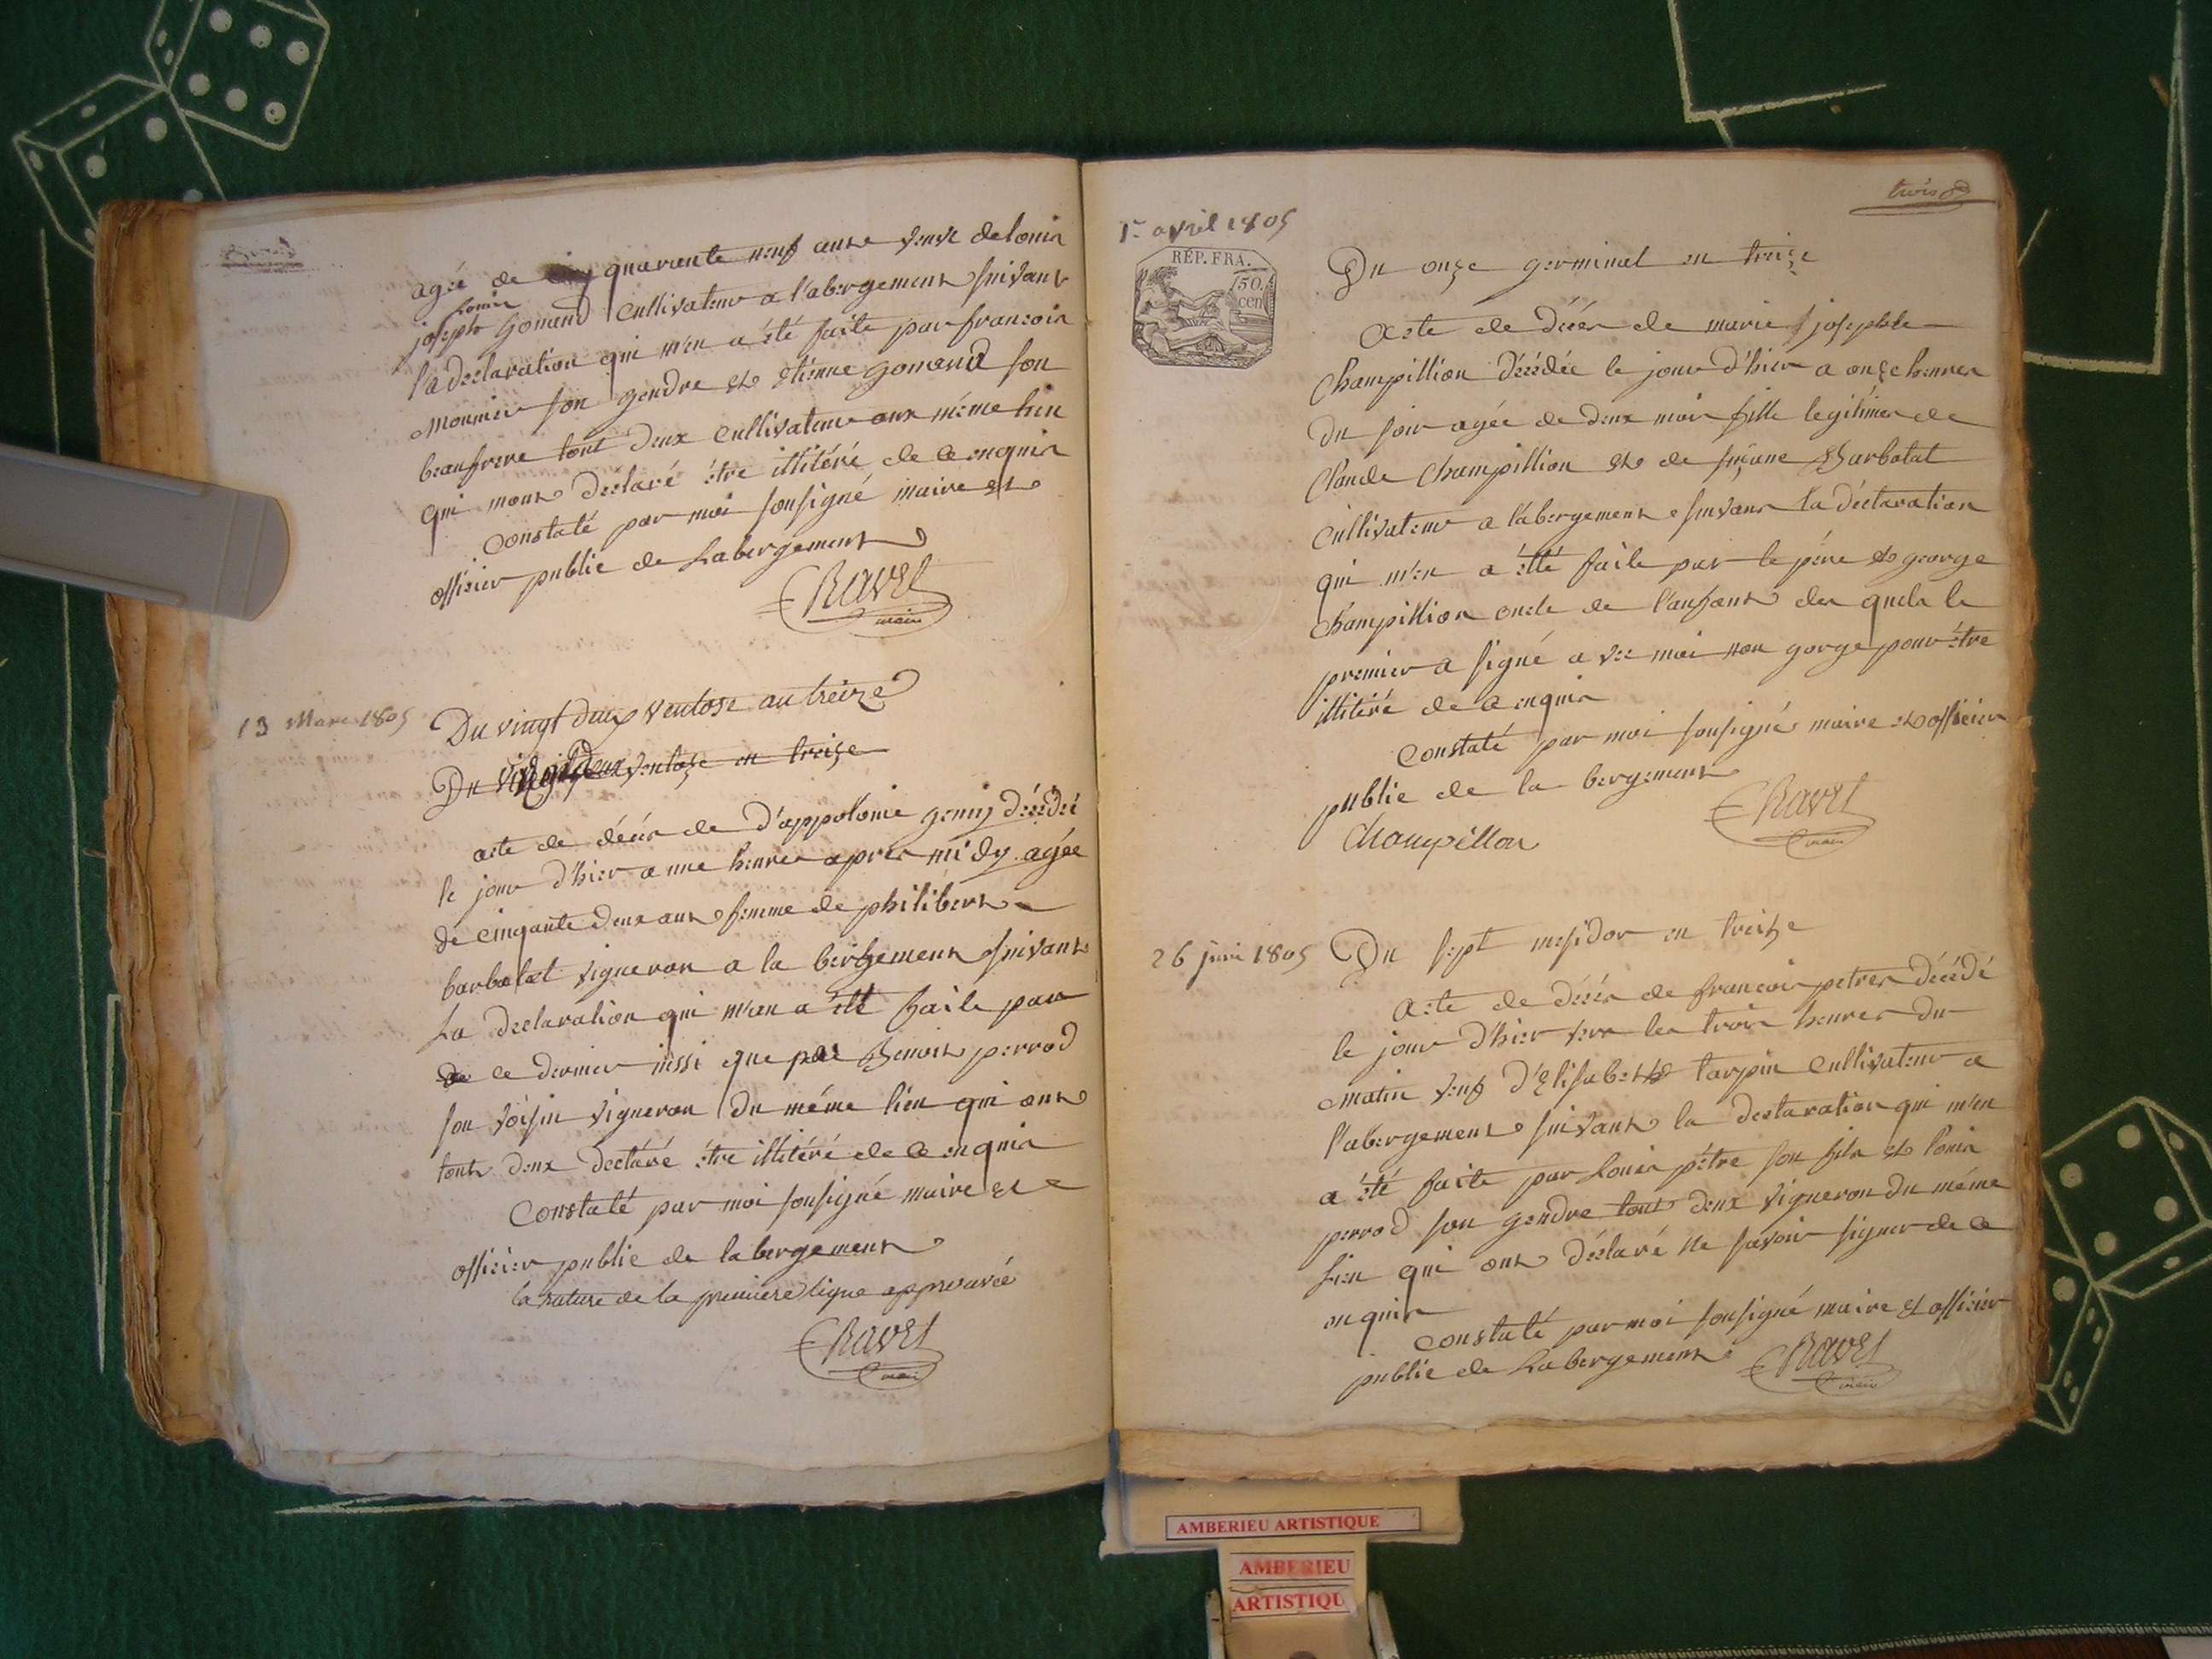 agée de quarante neuf ans veuve de louis
louis
joseph Gonand cultivateur a l'abergement suivant
la declaration qui m'en a été faite par francois
mounier son gendre et etienne gonand son
beaufrere tout deux cultivateur aux même lieu
qui mont déclaré être illitéré de ce enquis
constaté par moi sousigné maire et
officier public de Labergement
Ravet
maire
13 Mars 1805
Du vingt deux ventose an treize
Du vingt deux ventose en treize
acte de décés de d'appolonie geniy décédée
le jour d'hier a une heures apres midy agée
de cinquante deux ans femme de philibert
barbolat vigneron a la bergement suivant
La declaration qui m'en a été faite par
ce dernier insi que par Benoit perrod
son voisin vigneron du même lieu qui ont
tout deux declaré être illitéré de ce enquis
Constaté par moi sousigné maire et
officier public de labergement
la rature de la premiere ligne approuvée
Ravet
maire
trois
1r avril 1805
RÉP. FRA.
50.
cen
Du onze germinal en treize
Acte de décés de marie josephte
Champillion décédée le jour d'hier a onze heures
du soir agée de deux mois fille legitimes de
Claude Champillion et de suzane Barbolat
cultivateur a l'abergement suivant la déclaration
qui m'en a étté faite par le père et george
Champillion oncle de l'anfant des quels le
premier a signé a vec moi non gorge pour être
illitéré de ce enquis
Constaté par moi sousigné maire et officier
public de la bergement
Champillon
Ravet
maire
26 juin 1805
Du sept mesidor en treize
Acte de décés de francois petres décédé
le jour d'hier vers les trois heures du
matin veuf d'Elisabeth tarpin cultivateur a
l'abergement suivant la declaration qui m'en
a été faite par Louis pètre son fils et louis
perrod son gendre tout deux vigneron du même
lieu qui ont déclaré ne savoir signer de ce
enquis
constaté par moi sousigné maire et officier
public de Labergement
Ravet
maire
AMBERIEU ARTISTIQUE
AMBERIEU
ARTISTIQU